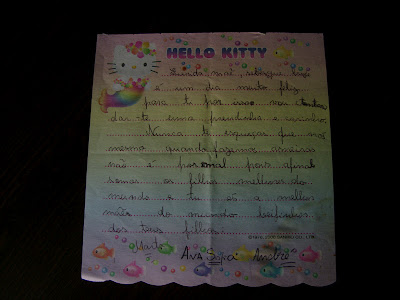 HELLO KITTY
é um dia muito feliz
para ti por isso vou tentar
dar-te uma prendinha e carinho
Nunca te esqueças que nós
mesmo quando fazemos asneiras
não é por mal pois afinal
somos os filhos melhores do
mundo e tu és a melhor
mãe do mundo beijinhos
dos teus filhos
Marta ANA Sofia André